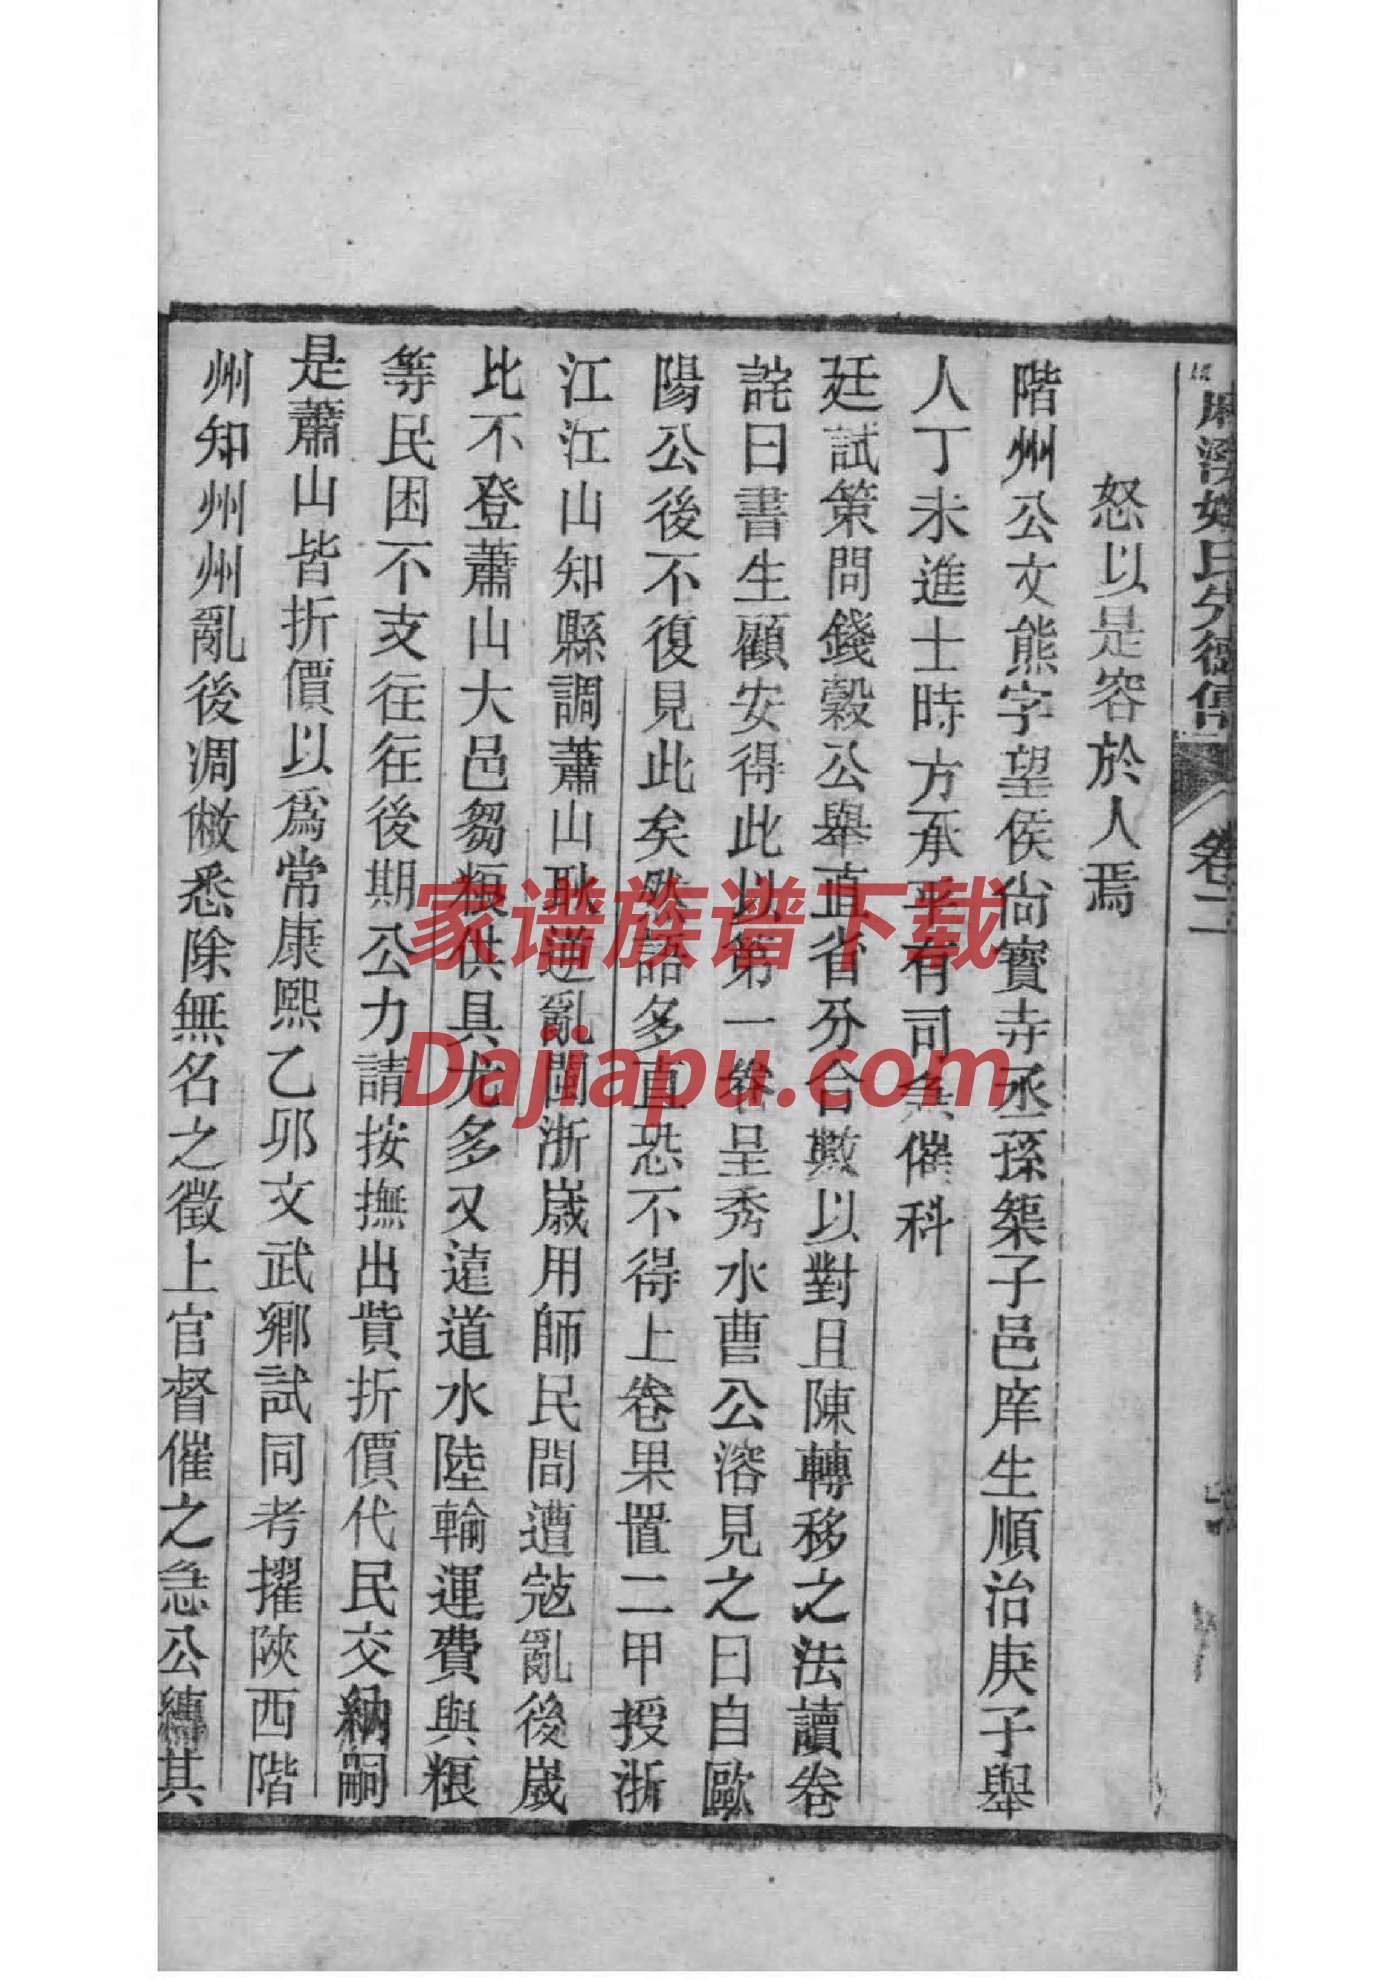 麻溪姚氏先德傳 卷二
怒以是容於人焉
階州公文熊字望侯尚寶寺丞孫榘子邑庠生順治庚子舉
人丁未進士時方承平有司急催科
廷試策問錢穀公舉直省分合數以對且陳轉移之法讀卷
詫曰書生顧安得此以第一卷呈秀水曹公溶見之曰自歐
陽公後不復見此矣然語多直恐不得上卷果置二甲授浙
江江山知縣調蕭山耿逆亂閩浙歲用師民間遭寇亂後歲
比不登蕭山大邑芻糗供具尤多又遠道水陸輪運費與糗
等民困不支往往後期公力請按撫出貲折價代民交納嗣
是蕭山皆折價以為常康熙乙卯文武鄉試同考擢陝西階
州知州州亂後凋敝悉除無名之徵上官督催之急公縛其
家谱族谱下载
Dajiapu.com